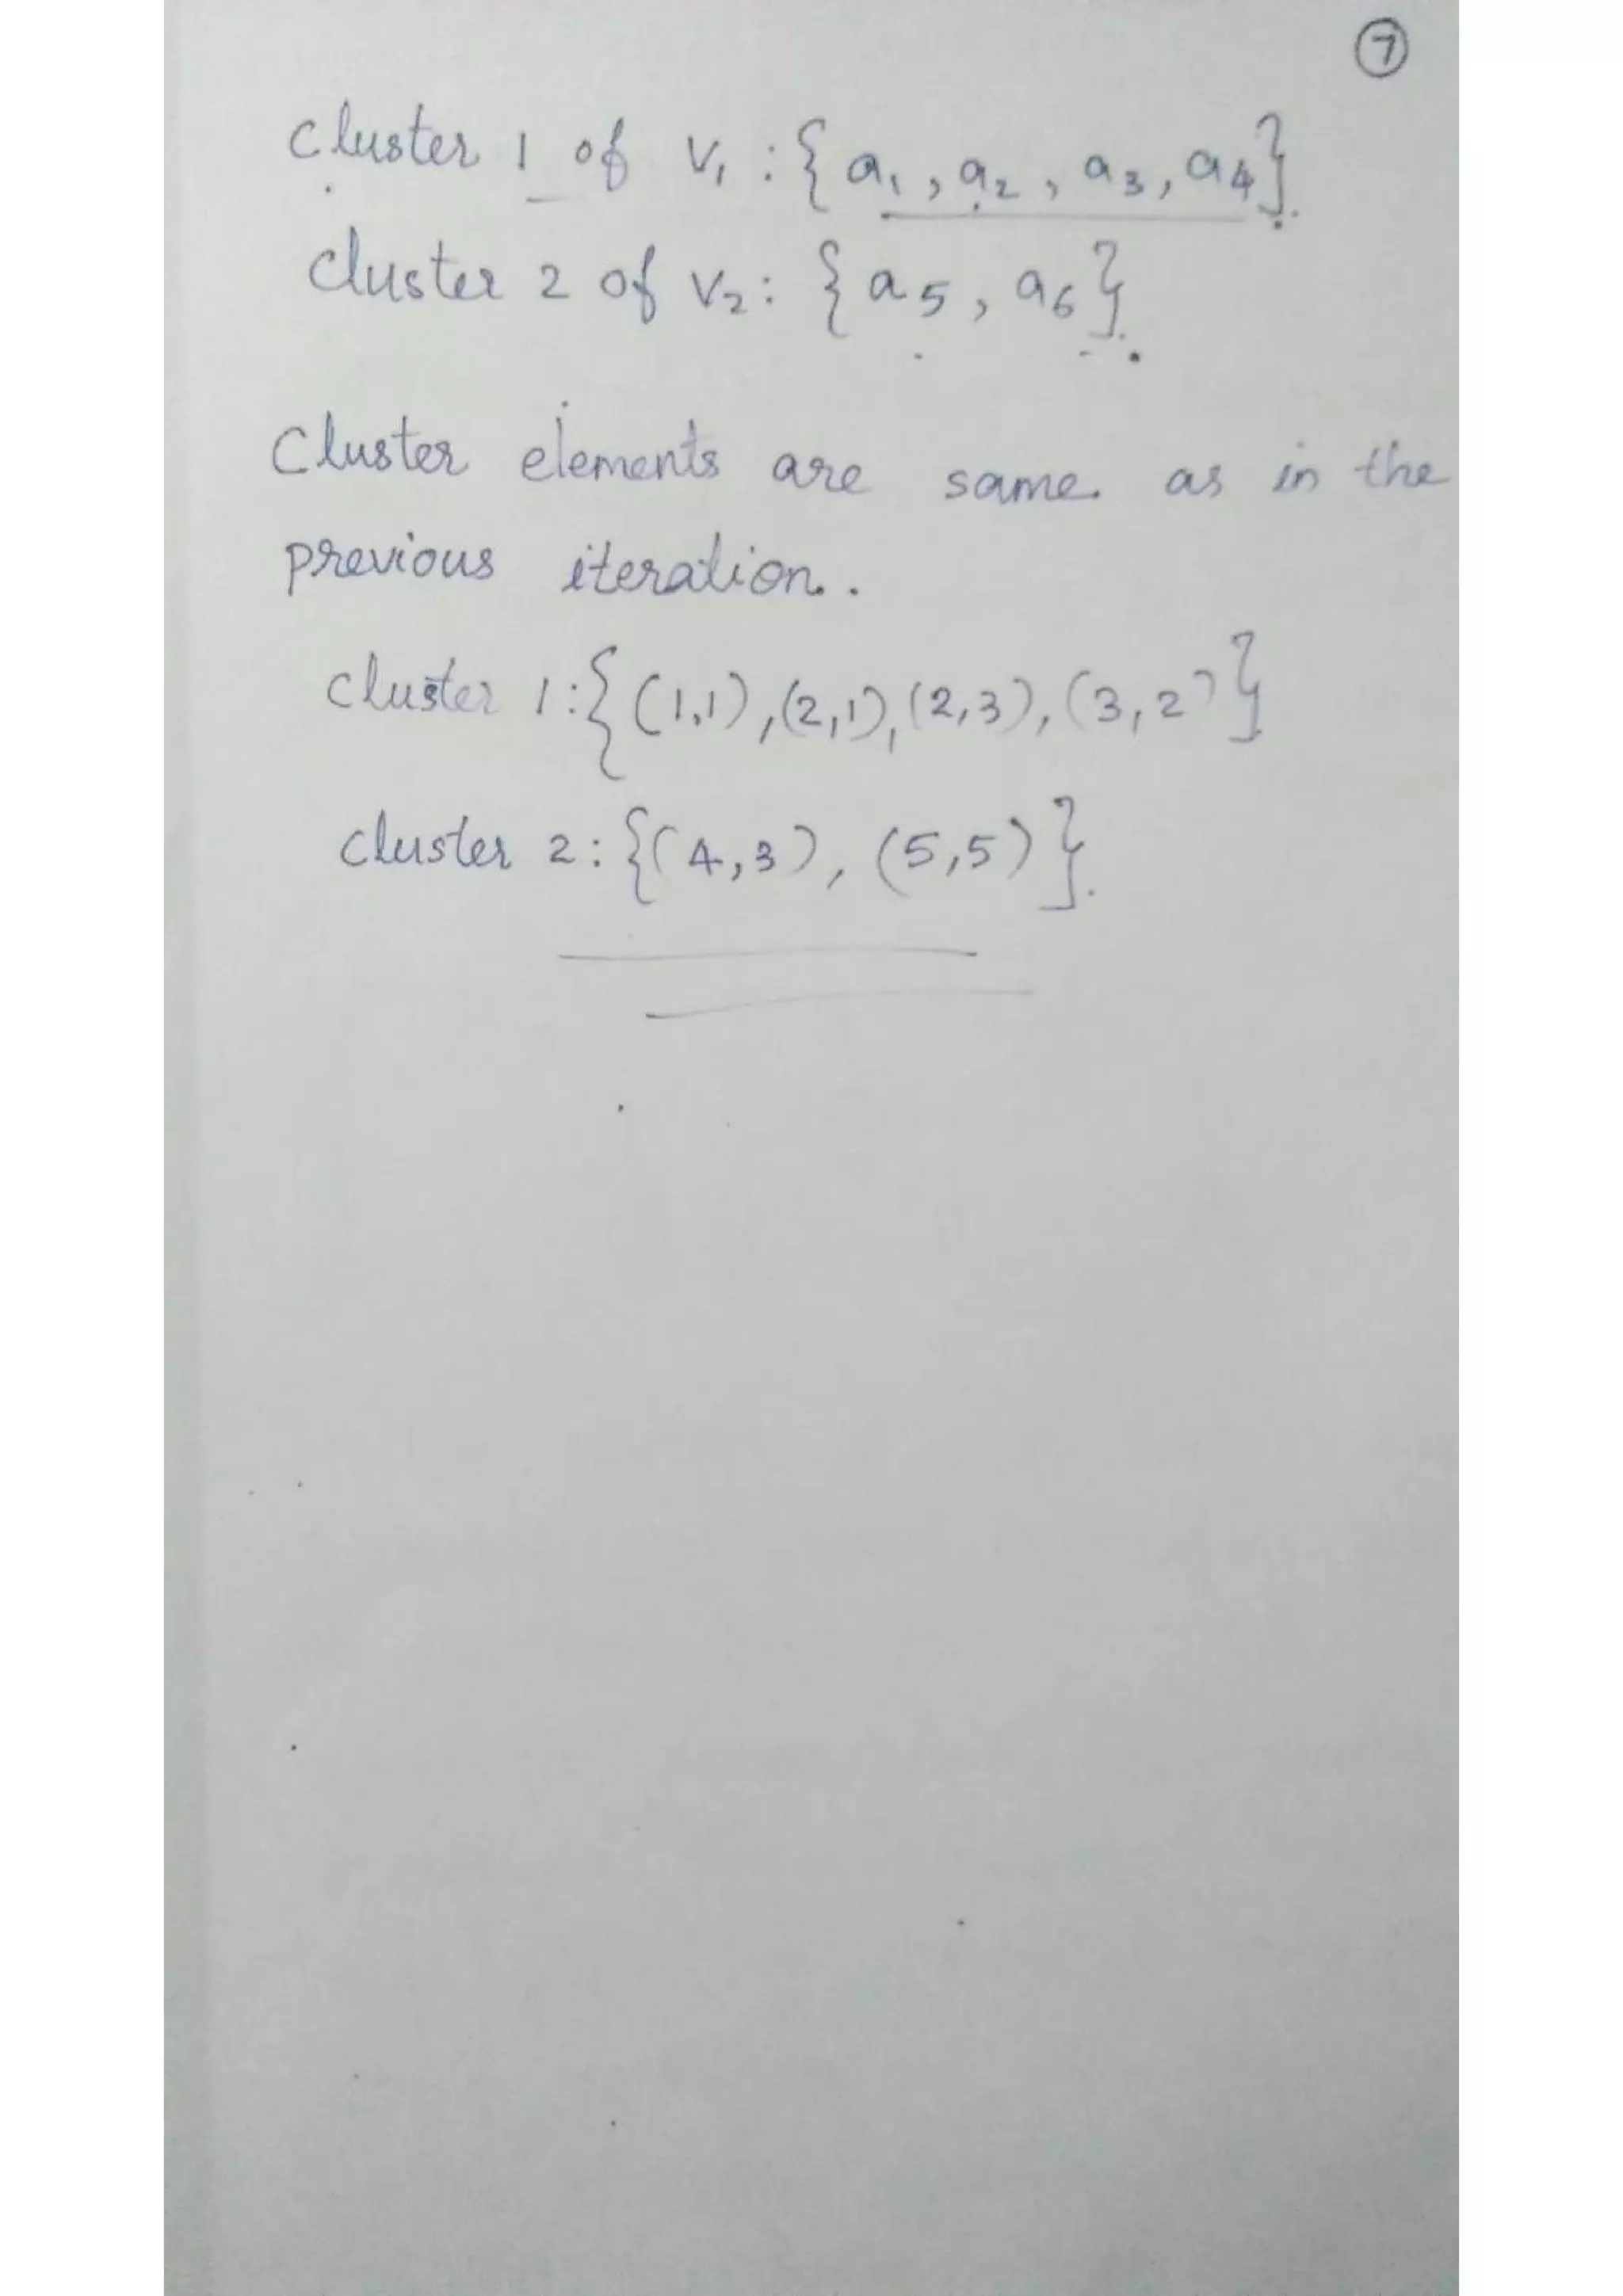 7
Cluster 1 of V₁ : { a₁, a₂, a₃, a₄}.
Cluster 2 of V₂ : { a₅, a₆}.
Cluster elements are same as in the
previous iteration.
Cluster 1:{(1,1),(2,1),(2,3),(3,2)}
Cluster 2:{(4,3), (5,5)}.